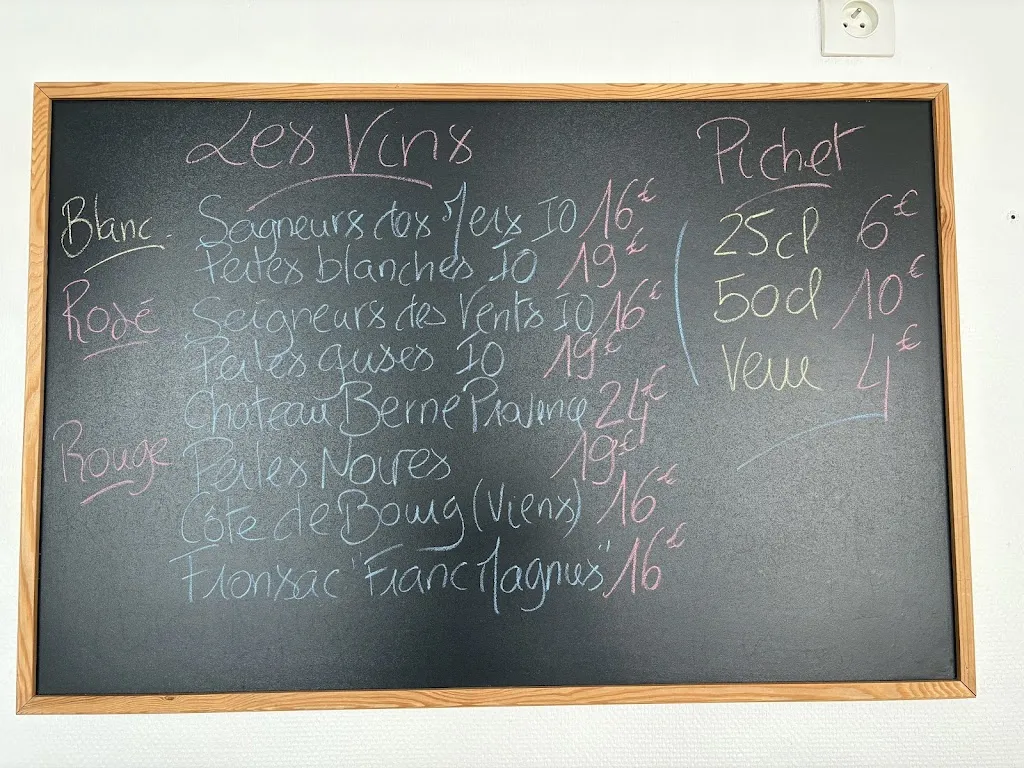 Les Vins
Blanc Seigneurs des Mers IO 16€
Perles blanches IO 19€
Rosé Seigneurs des Vents IO 16€
Perles grises IO 19€
Chateau Berne Provence 24€
Rouge Perles Noires 19€
Côte de Bourg (Viens) 16€
Fronsac "Franc Magnus" 16€
Pichet
25cl 6€
50cl 10€
Verre 4€